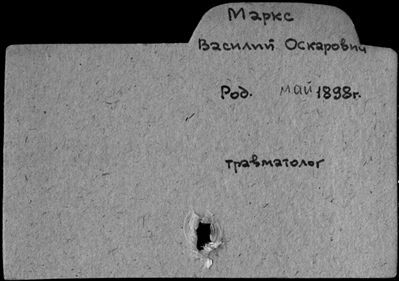 Маркс
Василий Оскарович
Род. май 1898г.
травматолог